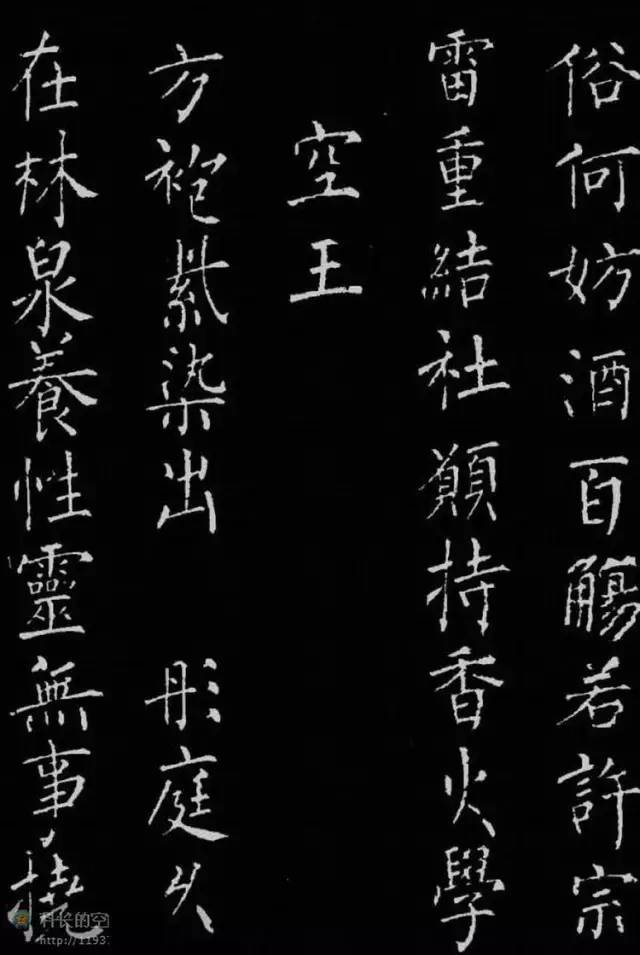 俗何妨酒百觴若許宗
雷重結社願持香火學
空王
方袍紫染出 彤庭久
在林泉養性靈無事撓
科长的空
http://1193